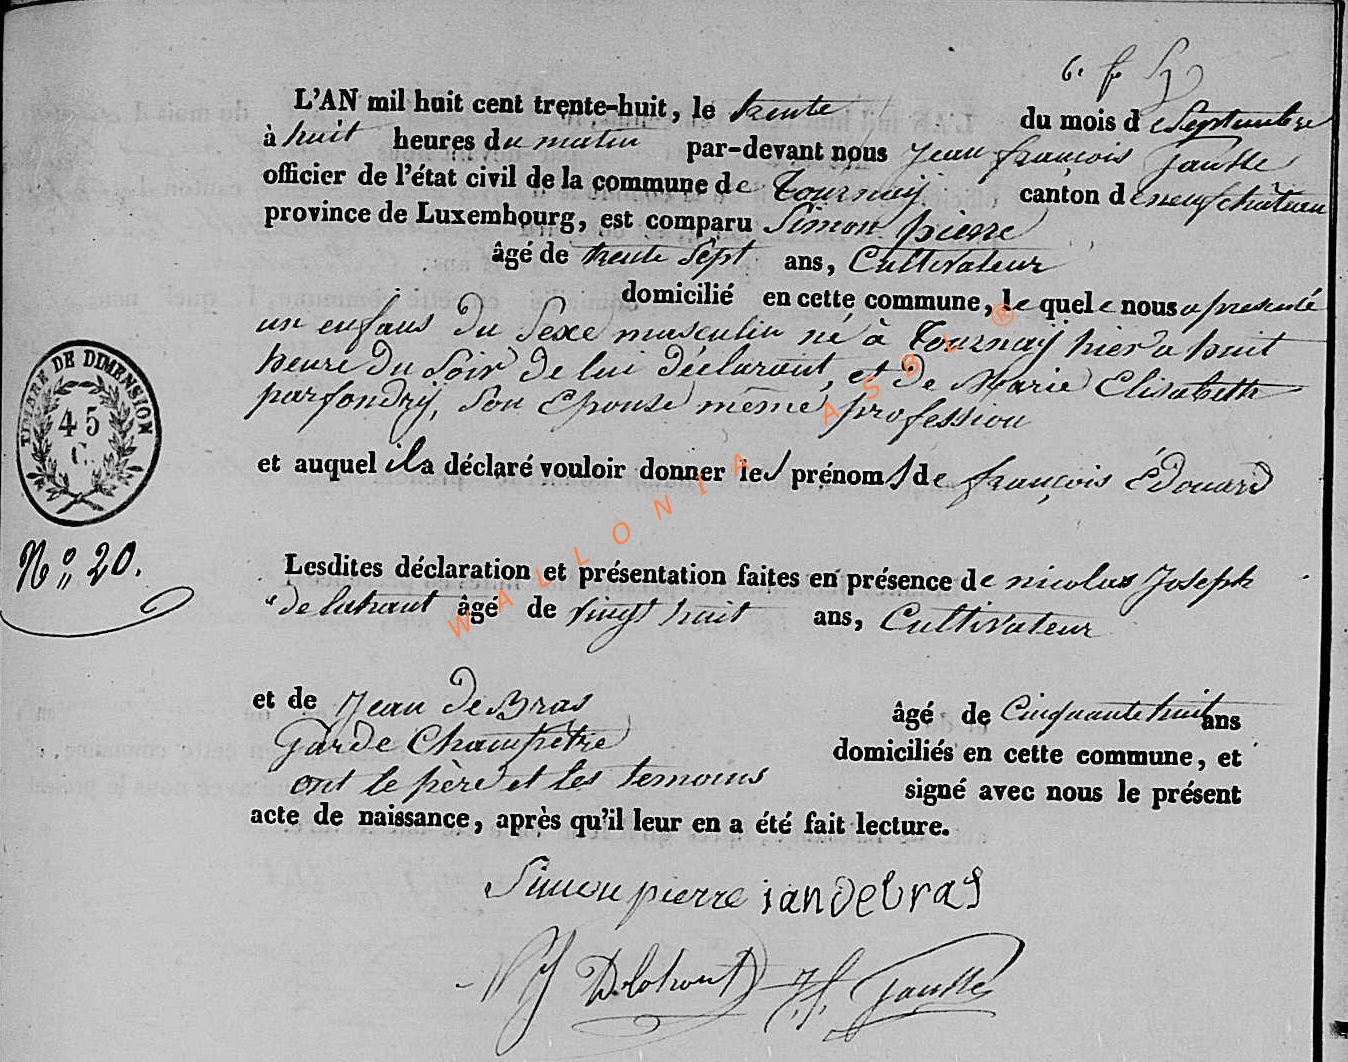 L'AN mil huit cent trente-huit, le trente du mois de Septembre
à huit heures du matin par-devant nous Jean françois
officier de l'état civil de la commune de Tournay canton de neufchâteau
province de Luxembourg, est comparu Simon pierre
âgé de trente Sept ans, Cultivateur
domicilié en cette commune, le quel e nous a presenté
un enfans du Sexe masculin né à Tournay hier a huit
heure du Soir de lui déclarant, et de Marie Elisabeth
parfondry, Son Epouse même profession
et auquel il a déclaré vouloir donner les prénoms de françois Édouard
TIMBRE DE DIMENSION
45
C.
N° 20.
Lesdites déclaration et présentation faites en présence de nicolas Joseph
delahaut âgé de vingt huit ans, Cultivateur
et de Jean deBras âgé de Cinquante huit ans
Garde Champetre domiciliés en cette commune, et
ont le père et les temoins signé avec nous le présent
acte de naissance, après qu'il leur en a été fait lecture.
Simon pierre jandebras
NJ Delahaut J.f.
WALLONIA ASBL ®